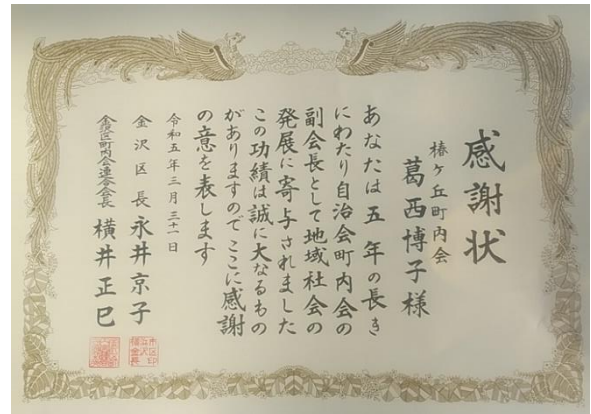 感謝状
椿ヶ丘町内会
葛西博子様
あなたは五年の長き
にわたり自治会町内会の
副会長として地域社会の
発展に寄与されました
この功績は誠に大なるもの
がありますのでここに感謝
の意を表します
令和五年三月三十一日
金沢区長 永井京子
金沢区町内会連合会長 横井正巳